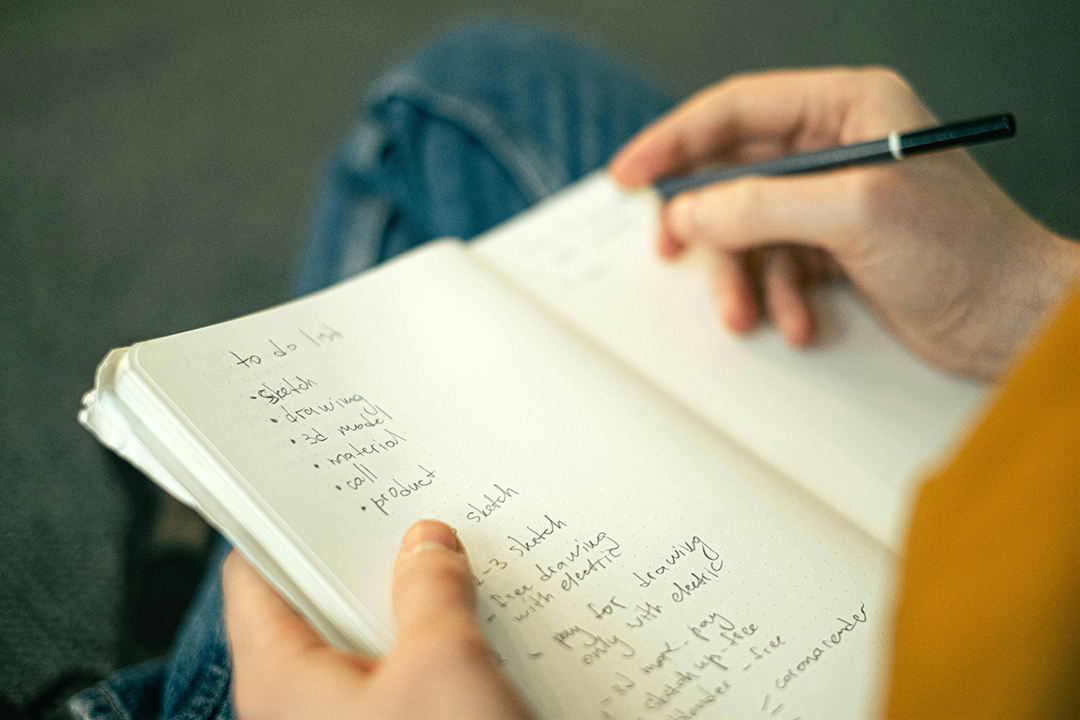 to do list
• sketch
• drawing
• 3d model
• material
• call
• product
sketch
2-3 sketch
- free drawing
with electric
pay for drawing
only with electric
-3d max - pay
sketch up - free
- free
= coronarender